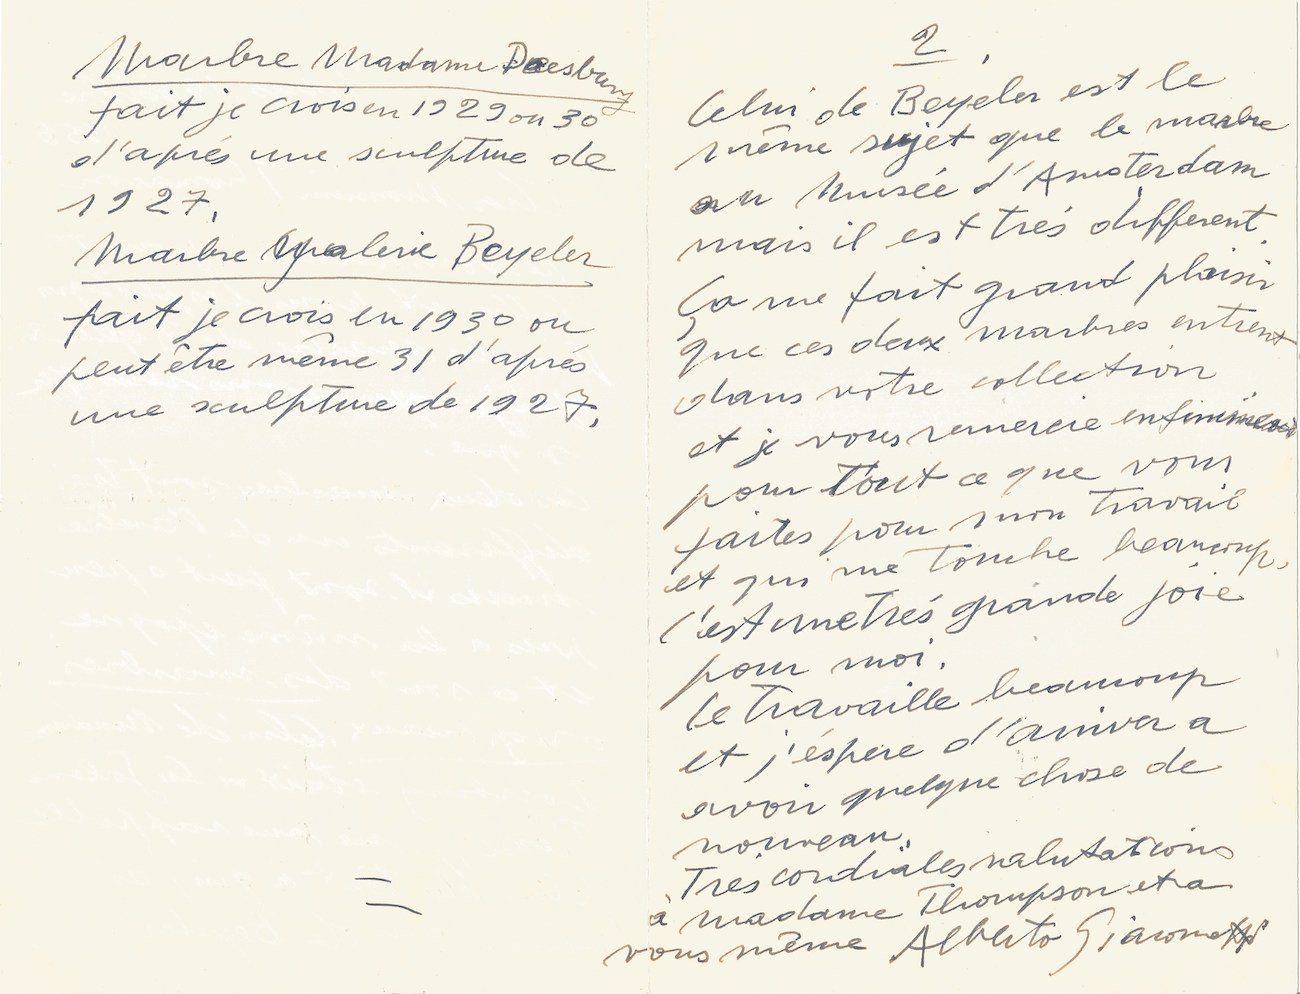 Marbre Madame Doesburg
fait je crois en 1929 ou 30
d'aprés une sculpture de
1927.
Marbre Galerie Beyeler
fait je crois en 1930 ou
peut être même 31 d'aprés
une sculpture de 1927.
2.
Celui de Beyeler est le
même sujet que le marbre
au Musée d'Amsterdam
mais il est trés different.
Ça me fait grand plaisir
que ces deux marbres entrent
dans votre collection
et je vous remercie
pour tout ce que vous
faites pour mon travail
et qui me touche beaucoup,
c'est une trés grande joie
pour moi.
Je travaille beaucoup
et j'éspere d'arriver a
avoir quelque chose de
nouveau.
Trés cordiales salutations
à madame Thompson et a
vous même Alberto Giacometti